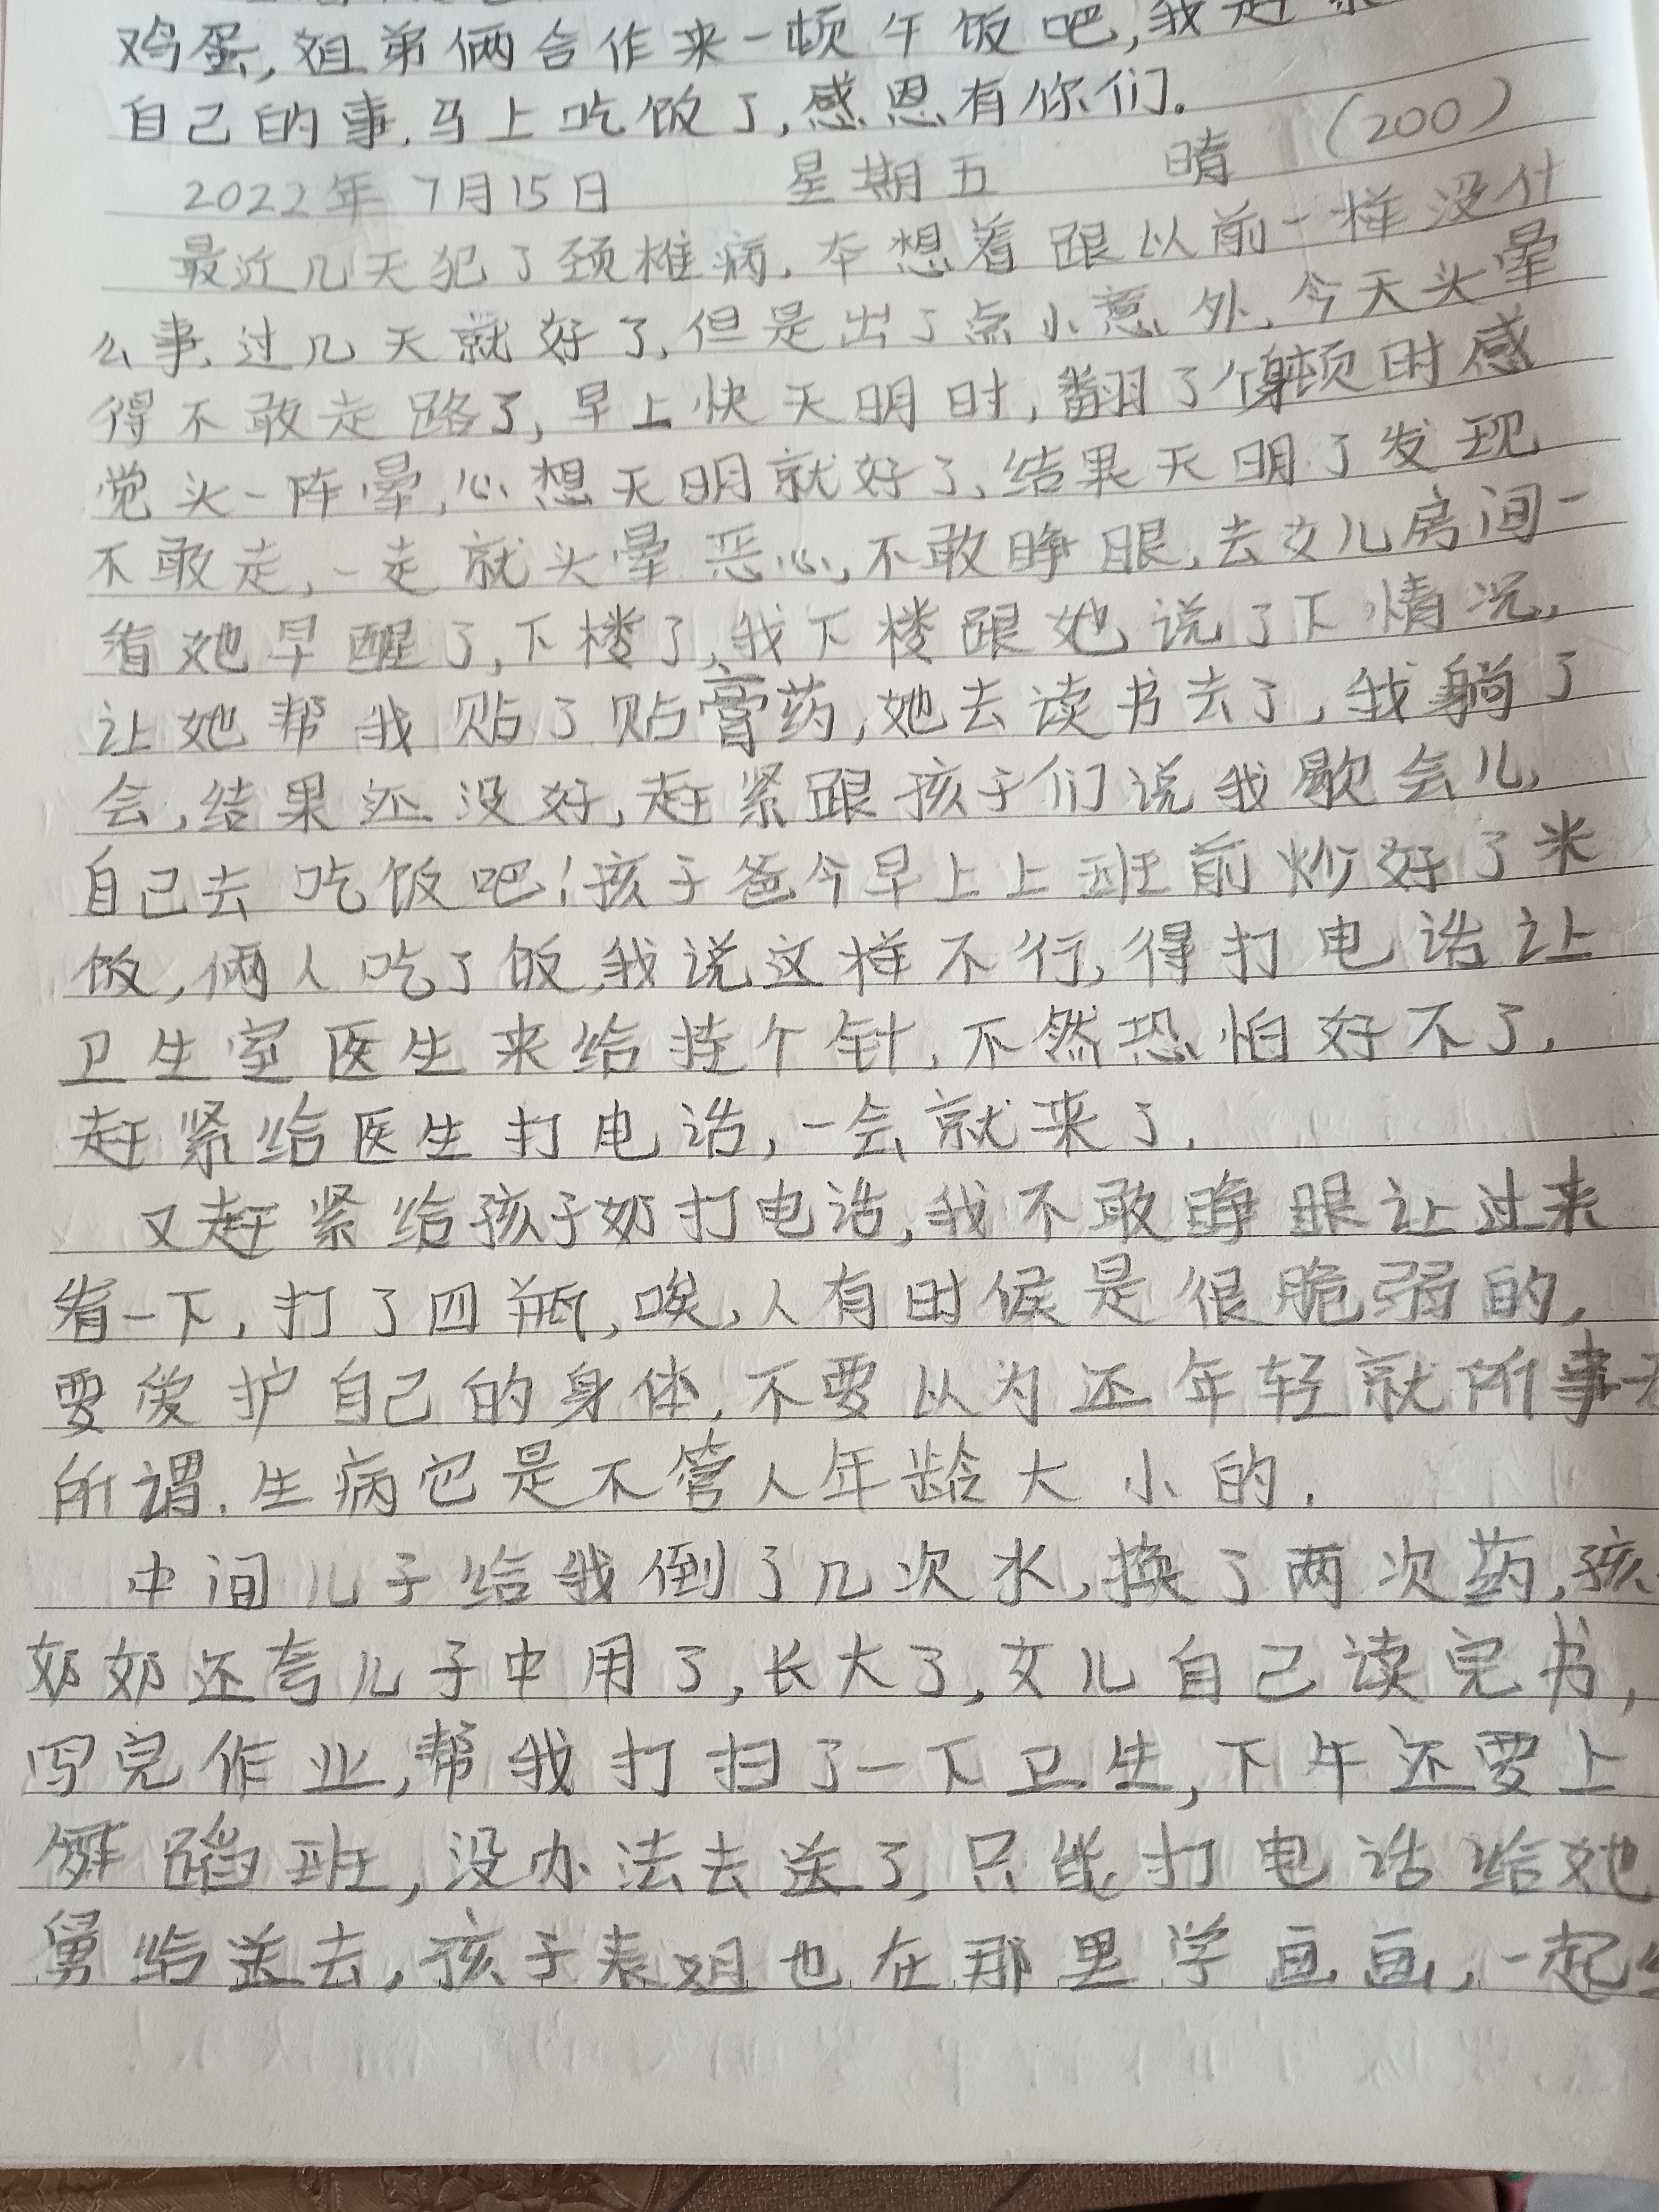 鸡蛋,姐弟俩合作来一顿午饭吧,我赶紧
自己的事.马上吃饭了,感恩有你们.
2022年7月15日 星期五 晴 (200)
最近几天犯了颈椎病.本想着跟以前一样没什
么事.过几天就好了,但是出了点小意外.今天头晕
得不敢走路了,早上快天明时,翻了个身顿时感
觉头一阵晕,心想天明就好了,结果天明了发现
不敢走,一走就头晕恶心,不敢睁眼,去女儿房间一
看她早醒了,下楼了,我下楼跟她说了下情况,
让她帮我贴了贴膏药,她去读书去了,我躺了
会,结果还没好,赶紧跟孩子们说我歇会儿,
自己去吃饭吧!孩子爸今早上上班前炒好了米
饭,俩人吃了饭,我说这样不行,得打电话让
卫生室医生来给挂个针,不然恐怕好不了,
赶紧给医生打电话,一会就来了.
又赶紧给孩子奶打电话,我不敢睁眼让过来
看一下,打了四瓶,唉,人有时候是很脆弱的,
要爱护自己的身体,不要以为还年轻就所事无
所谓.生病它是不管人年龄大小的.
中间儿子给我倒了几次水,换了两次药,孩
奶奶还夸儿子中用了,长大了,女儿自己读完书,
写完作业,帮我打扫了一下卫生,下午还要上
舞蹈班,没办法去送了,只能打电话给她
舅给送去,孩子表姐也在那里学画画,一起